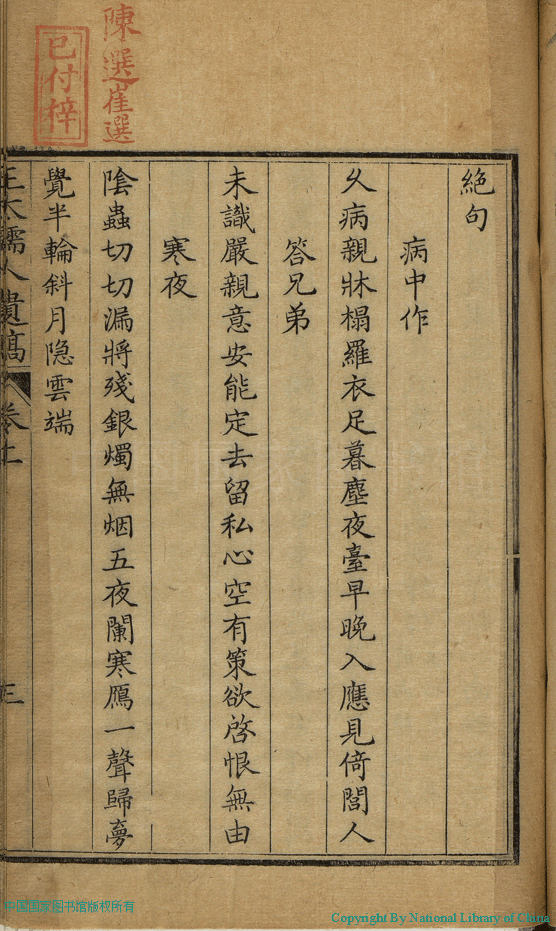 陳選崔選
已付梓
絕句
病中作
久病親牀榻羅衣足暮塵夜臺早晚入應見倚閭人
答兄弟
未識嚴親意安能定去留私心空有策欲啓恨無由
寒夜
陰蟲切切漏將殘銀燭無烟五夜闌寒鴈一聲歸夢
覺半輪斜月隐雲端
王太孺人遺稿 卷上 三
中国国家图书馆版权所有
Copyright By National Library of China